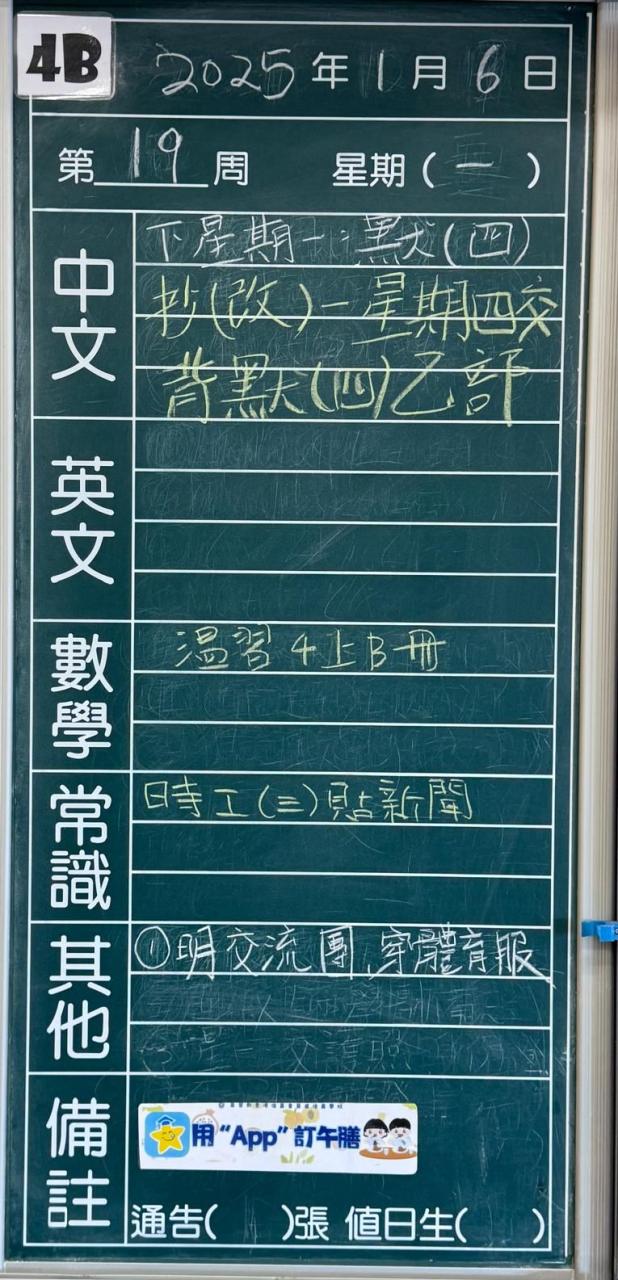 4B
2025年1月6日
第19周 星期(一)
中文
下星期一:默(四)
抄(改)-星期四交
背默(四)乙部
英文
數學
温習4上B冊
常識
時工(三)貼新聞
其他
①明交流團、穿體育服
備註
用“App”訂午膳
通告( )張 值日生( )